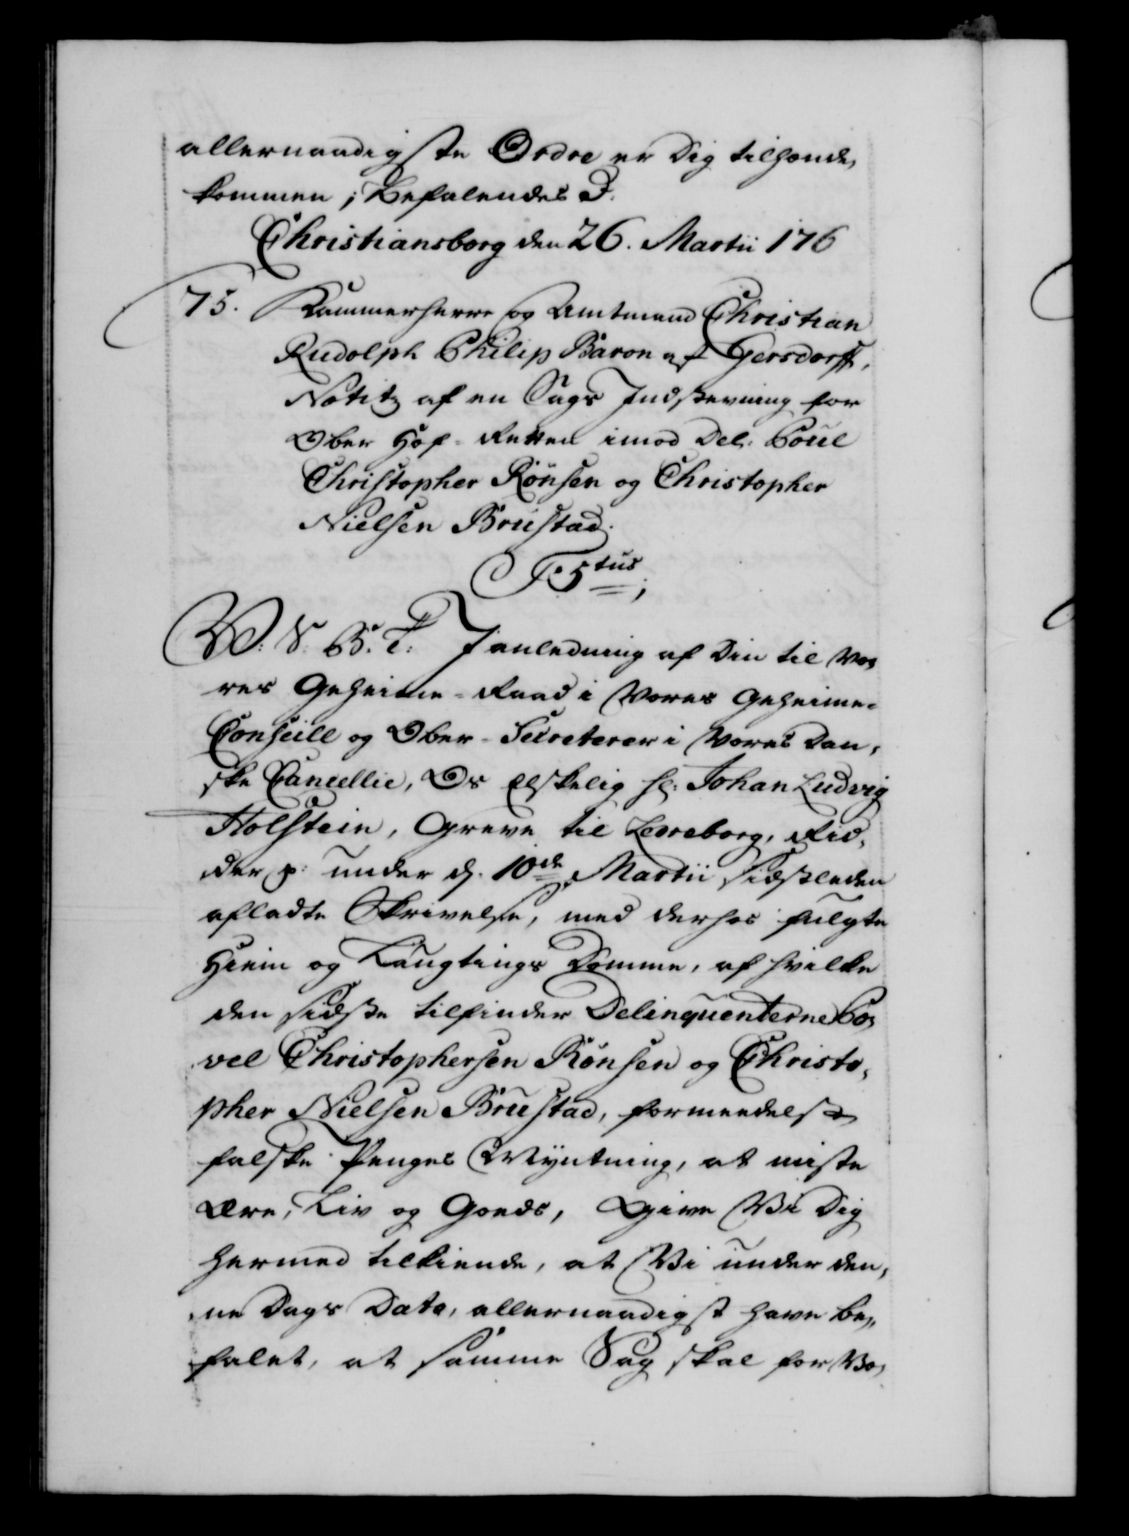 allernaadigste Ordre er Dig tilhænde,
kommen; Befalendes d.
Christiansborg den 26. Martii 176
75. Kammerherre og Amtmand Christian
Rudolph Philip Baron af Gersdorff,
Notitz af en Sags Indstevning for
Ober Hof-Retten imod Del: Poül
Christopher Rönsen og Christopher
Nielsen Brüstad.
F: 5tus;
W: S: G: T: I anledning af Din til Vo,
res Geheime-Raad i Vores Geheime-
Conseill og Ober-Secreterer i Vores Dan,
ske Cancellie, Os Elskelig Hr: Johan Ludvig
Holstein, Greve til Lewreborg, Rid,
der p: under d. 10de Martii sidstleden
afladte Skrivelse, med derhos fulgte
Hiem og Laugtings Domme, af hvilke
den sidste tilfinder Delinquenterne Po,
vel Christophersen Rönsen og Christo,
pher Nielsen Brüstad, formedelst
falske Penges Myntning, at miste
Ære, Liv og Gods, Give Vi Dig
hermed tilkiende, at Vi under den,
ne Dags Dato, allernaadigst have be,
falet, at samme Sag skal for Vo,